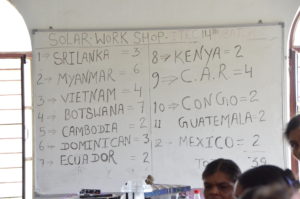 SOLAR-WORK SHOP-ITEC 14th BATCH
1→ SRILANKA = 3
2→ MYANMAR = 6
3→ VIETNAM = 4
4→ BOTSWANA = 7
5→ CAMBODIA = 2
6→ DOMINICAN = 3
7→ ECUADOR = 2
8→ KENYA = 2
9→ C.A.R = 4
10→ CONGO = 2
11 GUATEMALA = 2
12→ MEXICO = 2
39